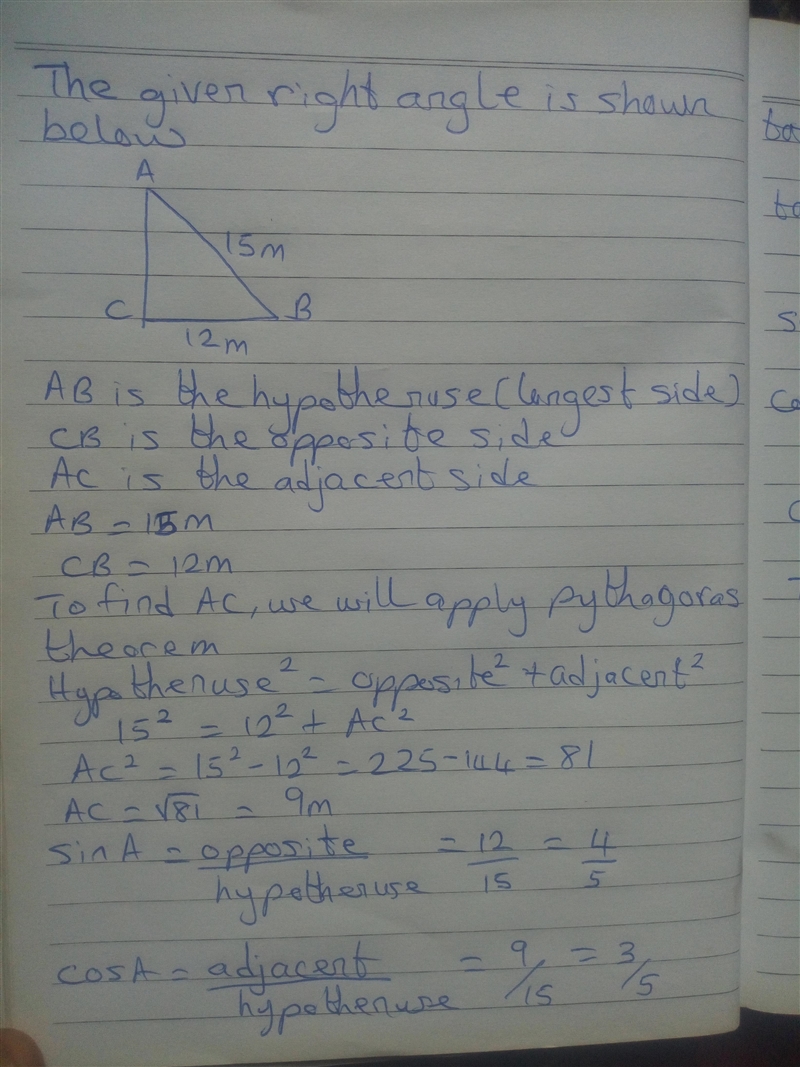 The given right angle is shown
below
A
15m
C
B
12m
AB is the hypothenuse (longest side)
CB is the opposite side
AC is the adjacent side
AB = 15m
CB = 12m
To find AC, we will apply pythagoras
theorem
Hypothenuse² = opposite² + adjacent²
15² = 12² + AC²
AC² = 15² - 12² = 225 - 144 = 81
AC = √81 = 9m
sin A = opposite/hypothenuse = 12/15 = 4/5
cosA = adjacent/hypothenuse = 9/15 = 3/5